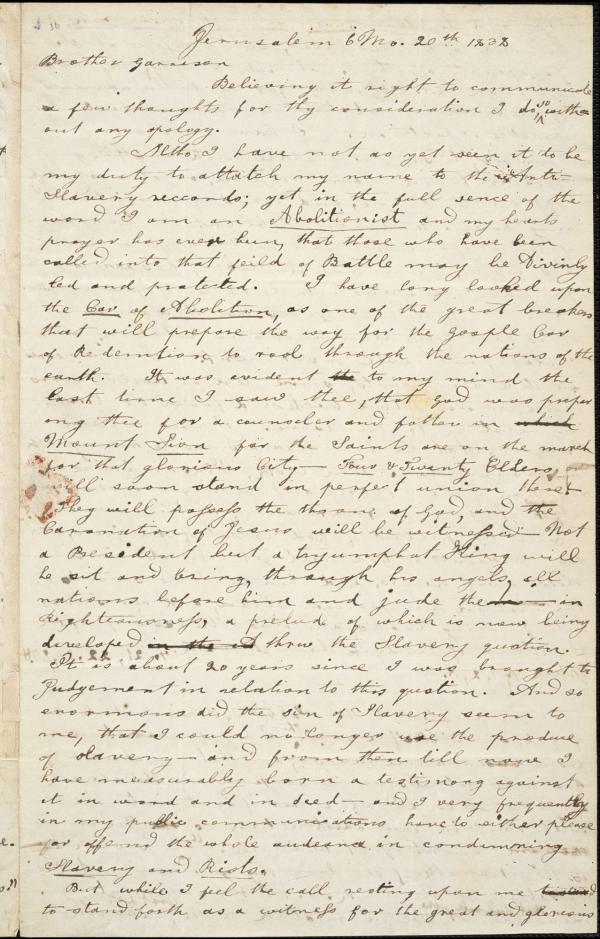 Jerusalem 6 Mo. 20th 1838
Brother Garrison
Believing it right to communicate
a few thoughts for thy consideration I do so with-
out any apology.
Altho, I have not as yet seen it to be
my duty to attatch my name to the Anti-
Slavery reccords; yet in the full sence of the
word I am an Abolitionist and my hearts
prayer has ever been, that those who have been
called into that feild of Battle may be Divinly
led and protected. I have long looked upon
the Car of Abolition, as one of the great breakers
that will prepare the way for the gosple Car
of Redemtion, to rool through the nations of the
earth. It was evident the to my mind the
last time I saw thee, that God was prepar
ing thee for a counseler and father in which
Mount Sion for the Saints are on the march
for that glorious City— Four & Twenty Elders,
will soon stand in perfect union there
They will possess the throne of God, and the
Caronation of Jesus will be witnessed— Not
a President but a tryumphat King will
he sit and bring, through his angels, all
nations before him and jude them in
Righteousness, a prelude of which is now being
developed in the thrw the Slavery qustion.
It is about 20 years since I was brought to
Judgement in relation to this qustion. And so
enormous did the sin of Slavery seem to
me, that I could no longer use the produce
of slavery— and from then till now I
have measurably born a testimony against
it in word and in deed— and I very frequently
in my public communications have to either please
or offend the whole audeance, in condemning
Slavery and Riots.
But while I feel the call resting upon me
to stand forth as a witness for the great and glorious